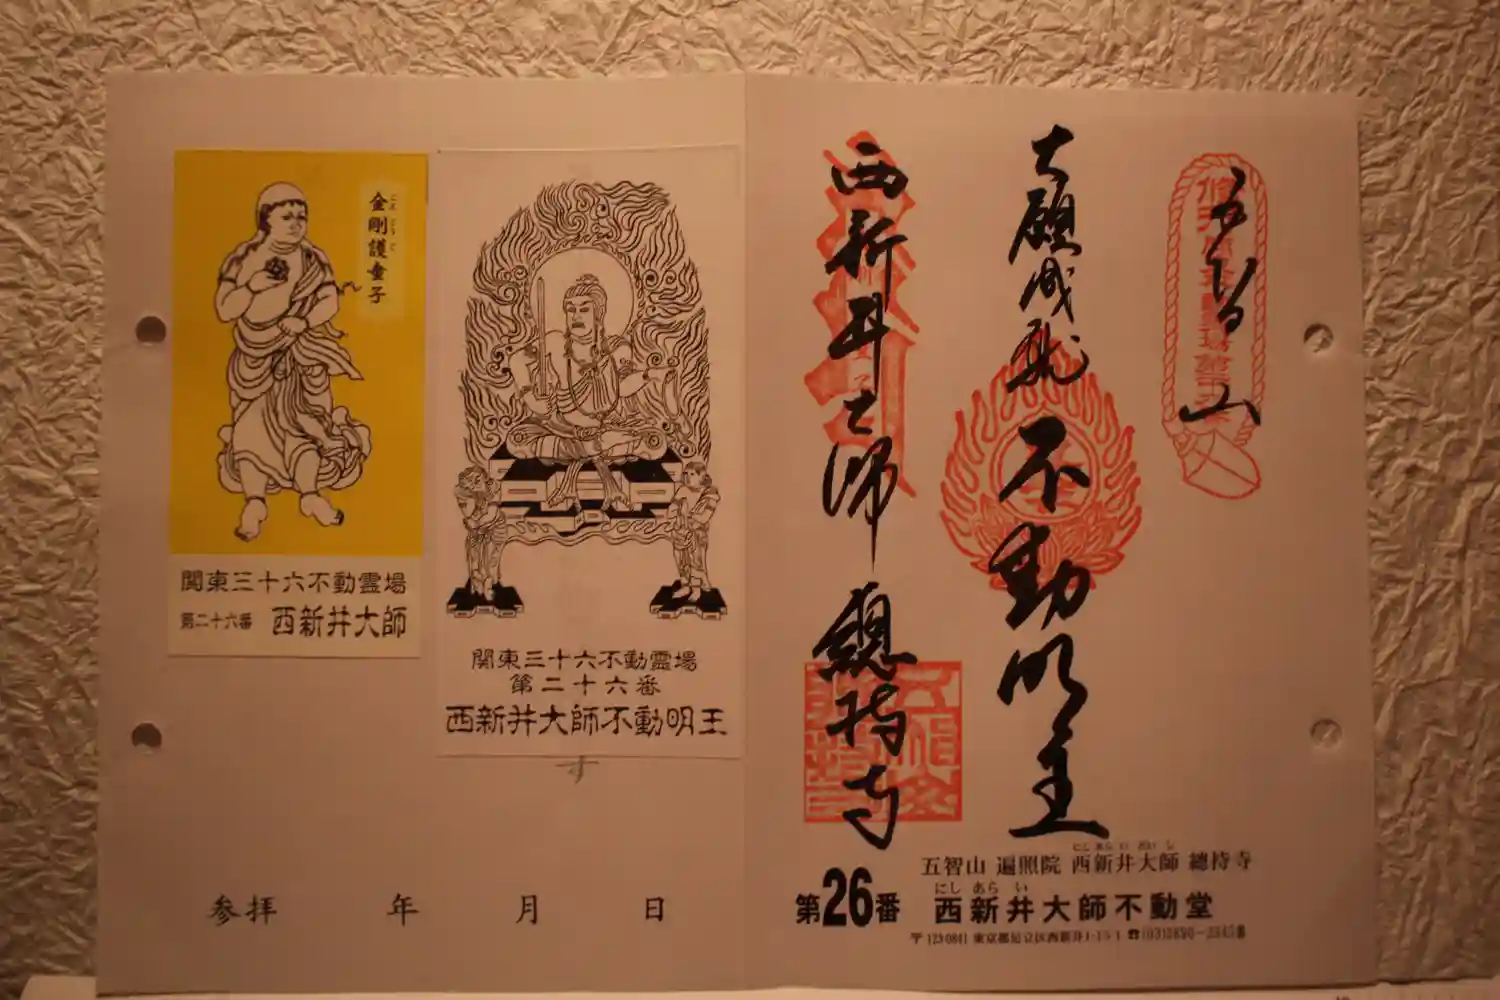 金剛護童子
こんごうご
関東三十六不動霊場
第二十六番 西新井大師
関東三十六不動霊場
第二十六番
西新井大師不動明王
参拝 年 月 日
五智山
大願成就 不動明王
西新井大師 總持寺
五智山 遍照院 西新井大師 總持寺
にし あら い だい し
第26番 西新井大師不動堂
にし あら い
〒123-0841 東京都足立区西新井1-15-1